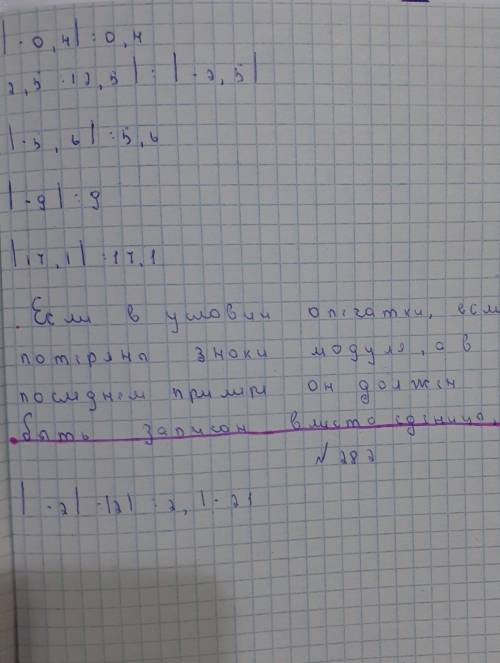 |-0,4| = 0,4
2,5 = |2,5| = |-2,5|
|-5,6| = 5,6
|-9| = 9
|17,1| = 17,1
Если в условии опечатки, если
потеряны знаки модуля, а в
последнем примере он должен
быть записан вместо единицы.
№ 282
|-2| = |2| = 2, |-2|